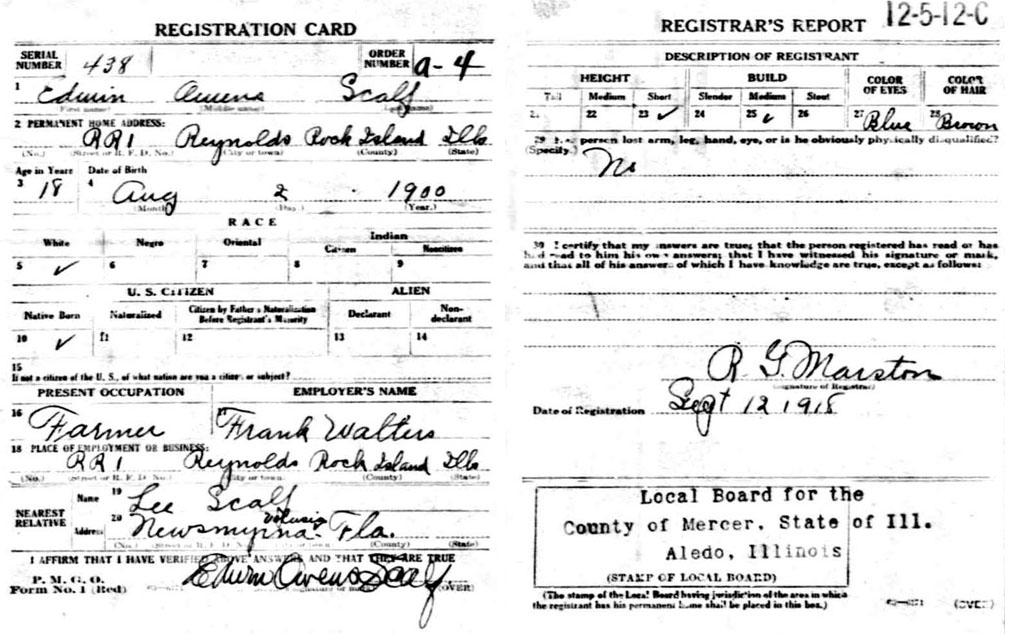 REGISTRATION CARD
SERIAL NUMBER 438 ORDER NUMBER A-4
1 Edwin Owens Scalf
(First name) (Middle name) (Last name)
2 PERMANENT HOME ADDRESS:
RR1 Reynolds Rock Island Ills
(No.) (Street or R. F. D. No.) (City or town) (County) (State)
Age in Years Date of Birth
3 18 4 Aug 2 1900
(Month) (Day.) (Year.)
RACE
White Negro Oriental Indian
Citizen Noncitizen
5 ✓ 6 7 8 9
U. S. CITIZEN ALIEN
Native Born Naturalized Citizen by Father's Naturalization Before Registrant's Majority Declarant Non-declarant
10 ✓ 11 12 13 14
15
If not a citizen of the U. S., of what nation are you a citizen or subject?
PRESENT OCCUPATION EMPLOYER'S NAME
16 Farmer 17 Frank Walters
18 PLACE OF EMPLOYMENT OR BUSINESS:
RR1 Reynolds Rock Island Ills
(No.) (Street or R. F. D. No.) (City or town) (County) (State)
NEAREST RELATIVE Name 19 Lee Scalf
Address 20 Newsmyrna Volusia Fla.
(No.) (Street or R. F. D. No.) (State)
I AFFIRM THAT I HAVE VERIFIED ABOVE ANSWERS AND THAT THEY ARE TRUE
P. M. G. O.
Form No. 1 (Red) Edwin Owens Scalf (OVER)
12-5-12-C
REGISTRAR'S REPORT
DESCRIPTION OF REGISTRANT
HEIGHT BUILD COLOR OF EYES COLOR OF HAIR
Tall Medium Short Slender Medium Stout
21 22 23 ✓ 24 25 ✓ 26 27 Blue 28 Brown
29 Has person lost arm, leg, hand, eye, or is he obviously physically disqualified?
(Specify.) No
30 I certify that my answers are true; that the person registered has read or has
had read to him his own answers; that I have witnessed his signature or mark,
and that all of his answers of which I have knowledge are true, except as follows:
R. G. Marston
(Signature of Registrar)
Date of Registration Sept 12 1918
Local Board for the
County of Mercer, State of Ill.
Aledo, Illinois
(STAMP OF LOCAL BOARD)
(The stamp of the Local Board having jurisdiction of the area in which
the registrant has his permanent home shall be placed in this box.)
(OVER)